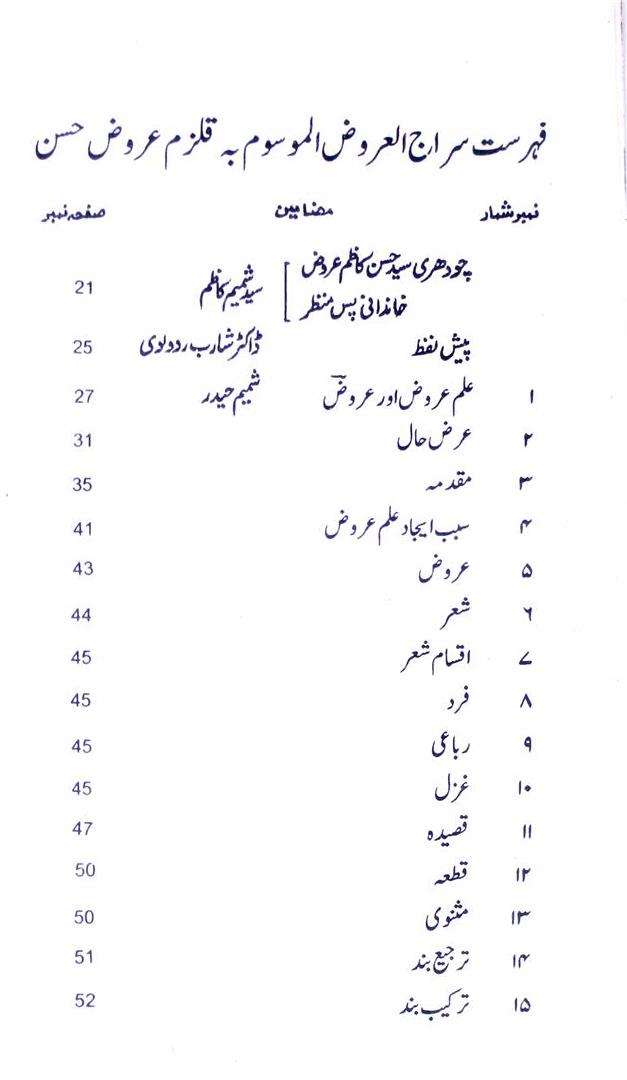 فہرست سراج العروض الموسوم بہ قلزم عروض حسن
نمبر شمار مضامین صفحہ نمبر
چودھری سید حسن کاظم عروض
خاندانی پس منظر سید شمیم کاظم 21
پیش لفظ ڈاکٹر شارب ردولوی 25
۱ علم عروض اور عروضؔ شمیم حیدر 27
۲ عرض حال 31
۳ مقدمہ 35
۴ سبب ایجاد علم عروض 41
۵ عروض 43
۶ شعر 44
۷ اقسام شعر 45
۸ فرد 45
۹ رباعی 45
۱۰ غزل 45
۱۱ قصیدہ 47
۱۲ قطعہ 50
۱۳ مثنوی 50
۱۴ ترجیع بند 51
۱۵ ترکیب بند 52